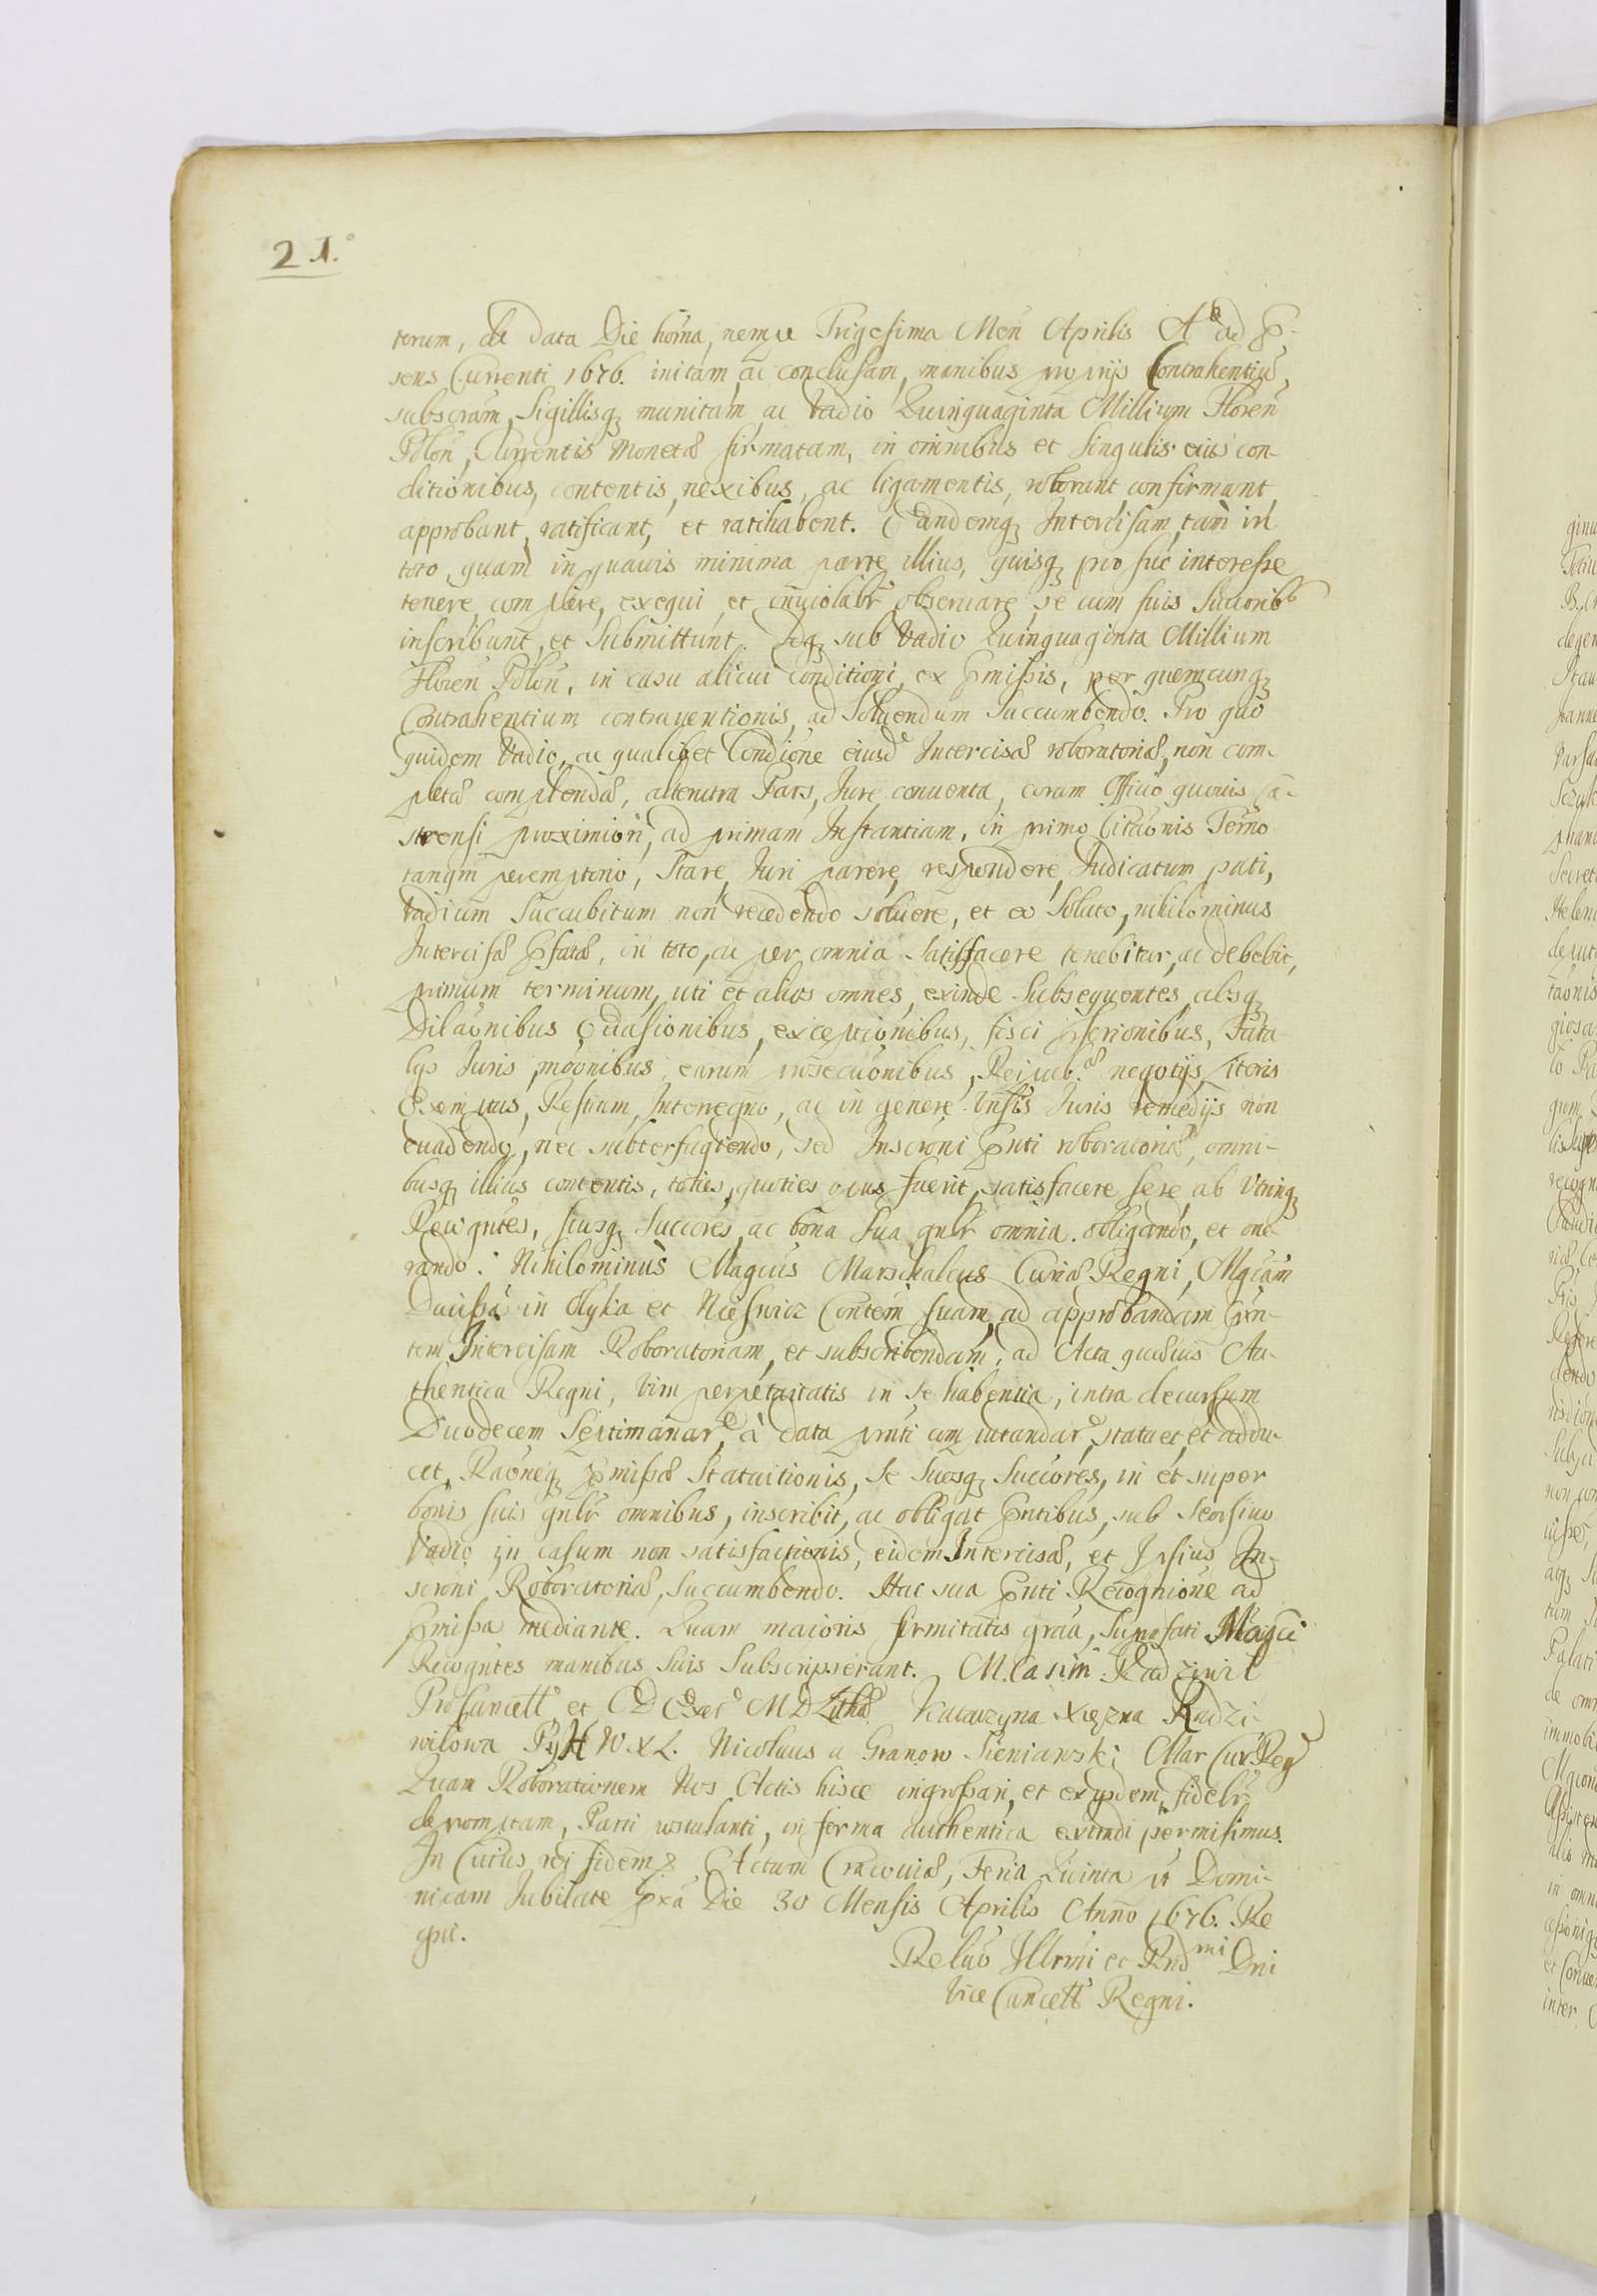 21.
torum, de data Die horna, nempe Trigesima Men Aprilis Ao ad p-
sens Currenti 1676. initam ac conclusam, manibus proprijs Contrahentiu,
subscram, Sigillisq munitam, ac Vadio Quinquaginta Millium Floren
Polon, Currentis Monetæ firmatam, in omnibus et singulis eius con-
ditionibus, contentis, nexibus, ac ligamentis, roborant, confirmant,
approbant, ratificant, et ratihabent. Eandemq Intercisam, tam in
toto, quam in quauis minima parte illius, quisq pro suo interesse
tenere, complere, exequi et inuiolabr obseruare se cum suis Succoribs
inscribunt, et Submittunt. Idq sub Vadio Quinquaginta Millium
Floren Polon, in casu alicui conditioni, ex pmissis, per quemcunq
Contrahentium contrauentionis, ad Soluendum Succumbendo. Pro quo
quidem Vadio, ac qualibet Condione eiusd Intercisæ roboratoriæ, non com-
pletæ complendæ, alterutra Pars, Jure conuenta, coram Officio quouis Ca-
strensi proximiori, ad primam Instantiam, in primo Citaonis Termo
tanqm peremptorio, Stare, Juri parere, respondere, Judicatum pati,
Vadium Succubitum non recedendo soluere, et eo Soluto, nihilominus
Intercisæ pfatæ, in toto, ac per omnia satisfacere tenebitur, ac debebit,
primum terminum, uti et alios omnes, exinde Subsequentes, absq
Dilaonibus Euasionibus, exceptionibus, fisci pscrionibus, Fata
lijs Juris, moonibus, earum prosecuonibus, Reipub. negotijs, literis
Exemptus, Restium, Interregno, ac in genere Vnsis Juris remedijs non
euadendo, nec subterfugiendo, sed Inscroni pnti roboratoriæ, omni-
busq illius contentis, toties, quoties opus fuerit, satisfacere sese ab Vtrinq
Recogntes, suosq Succores, ac bona Sua gnlr omnia obligando, et one-
rando. Nihilominus Magcus Marschalcus Curiæ Regni, Mgcam
Ducissa in Olyka et Nieswicz Contem suam, ad approbandam pn-
tem Intercisam Roboratoriam, et subscribendam, ad Acta quæuis Au-
thentica Regni, Vim perpetuitatis in se habentia, intra decursum
Duodecem Septimanar, à data pnti computandar, statuet, et addu-
cet, Raoneq pmissæ Statuitionis, Se Suosq Succores, in et super
bonis suis gnlr omnibus, inscribit, ac obligat pntibus, sub Seorsiuo
Vadio in casum non satisfactionis, eidem Intercisæ, et Ipsius In-
scroni Roboratoriæ, Succumbendo. Hac sua pnti Recognione ad
pmissa mediante. Quam maioris firmitatis graa, Suprafati Magci
Recogntes manibus Suis Subscripserant. M. Casim Radziwil
Procancell et CD Exer MD Lithæ Katarzyna Xiężna Radzi-
wilowa PyH W X L. Nicolaus a Granow Sieniawski Mar Cur Reg
Quam Roborationem Nos Actis hisce ingrossari, et exijsdem, fidelr
depromptam, Parti postulanti, in forma authentica extradi permisimus.
In Cuius rei fidem Actum Cracouiæ, Feria Quinta pt Domi-
nicam Jubilate pxa Die 30 Mensis Aprilis Anno 1676. Re
gni.
Relao Illrmi et Rndmi Dni
Vice Cancell Regni.